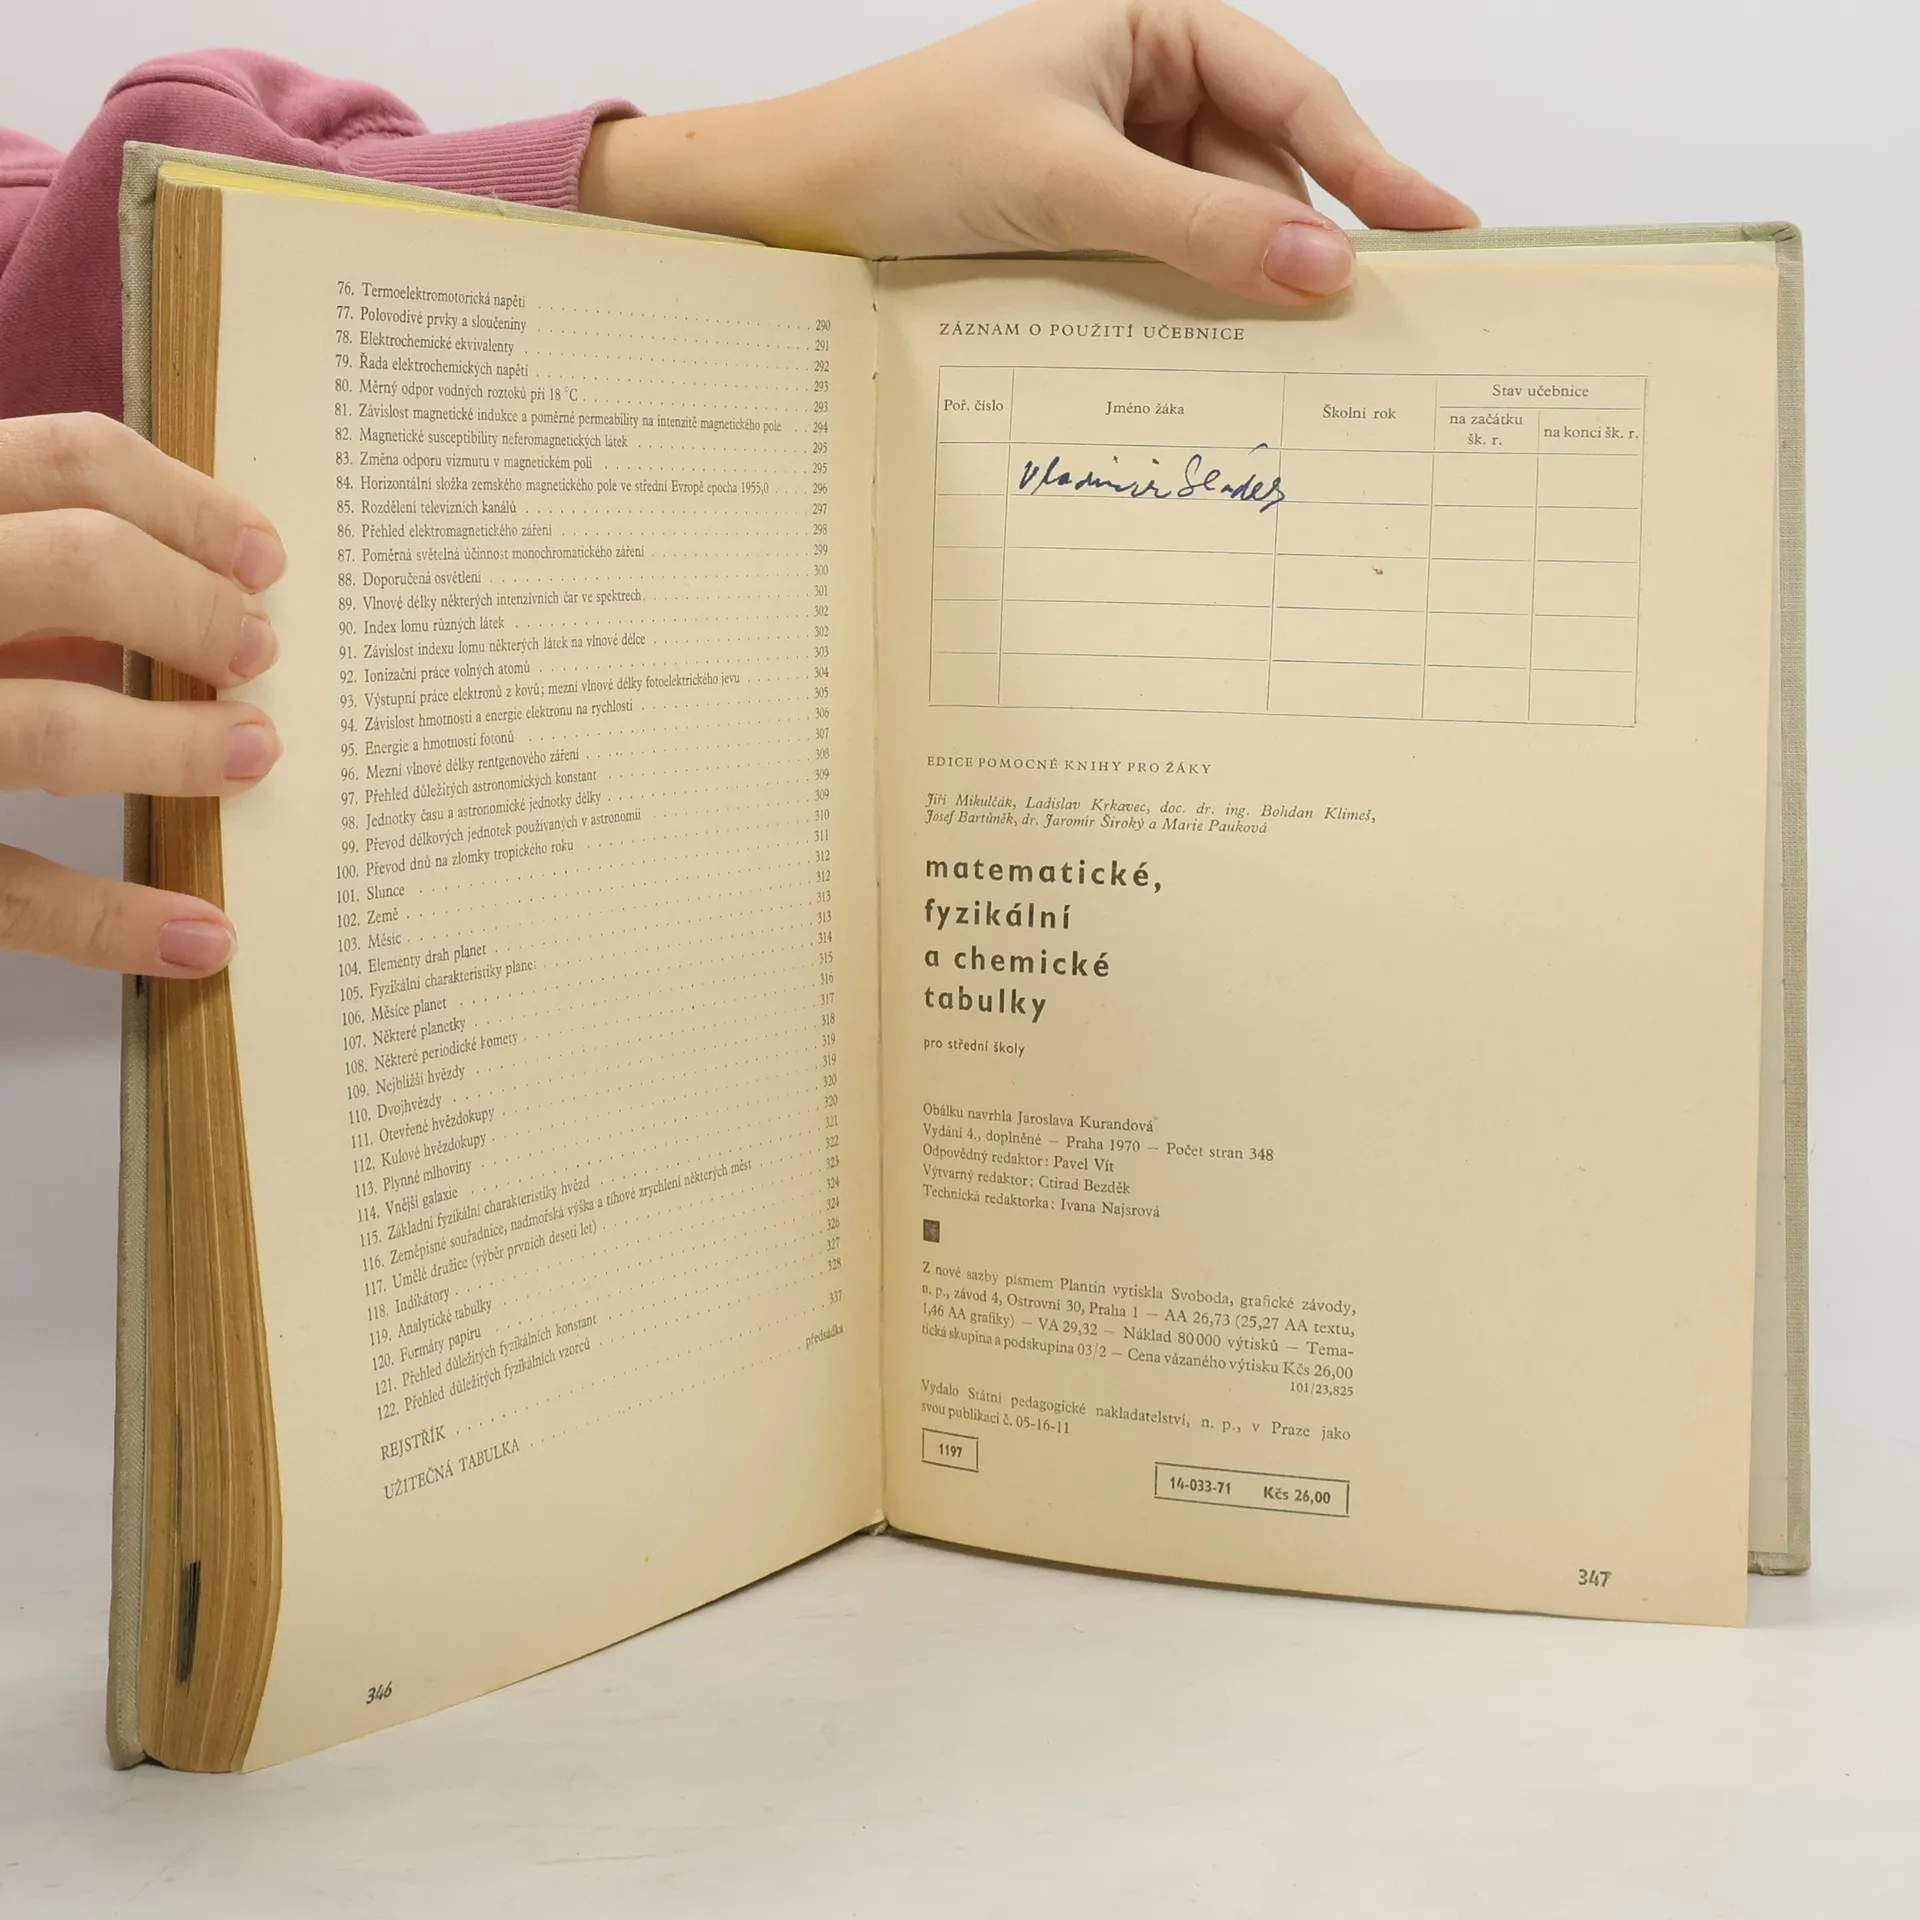 76. Termoelektromotorická napětí . . . 290
77. Polovodivé prvky a sloučeniny . . . 291
78. Elektrochemické ekvivalenty . . . 292
79. Řada elektrochemických napětí . . . 293
80. Měrný odpor vodných roztoků při 18 °C . . . 293
81. Závislost magnetické indukce a poměrné permeability na intenzitě magnetického pole . . 294
82. Magnetické susceptibility neferomagnetických látek . . . 295
83. Změna odporu vizmutu v magnetickém poli . . . 295
84. Horizontální složka zemského magnetického pole ve střední Evropě epocha 1955,0 . . . 296
85. Rozdělení televizních kanálů . . . 297
86. Přehled elektromagnetického záření . . . 298
87. Poměrná světelná účinnost monochromatického záření . . . 299
88. Doporučená osvětlení . . . 300
89. Vlnové délky některých intenzívních čar ve spektrech . . . 301
90. Index lomu různých látek . . . 302
91. Závislost indexu lomu některých látek na vlnové délce . . . 302
92. Ionizační práce volných atomů . . . 303
93. Výstupní práce elektronů z kovů; mezní vlnové délky fotoelektrického jevu . . . 304
94. Závislost hmotnosti a energie elektronu na rychlosti . . . 305
95. Energie a hmotnosti fotonů . . . 306
96. Mezní vlnové délky rentgenového záření . . . 307
97. Přehled důležitých astronomických konstant . . . 308
98. Jednotky času a astronomické jednotky délky . . . 309
99. Převod délkových jednotek používaných v astronomii . . . 309
100. Převod dnů na zlomky tropického roku . . . 310
101. Slunce . . . 311
102. Země . . . 312
103. Měsíc . . . 312
104. Elementy drah planet . . . 313
105. Fyzikální charakteristiky planet . . . 313
106. Měsíce planet . . . 314
107. Některé planetky . . . 315
108. Některé periodické komety . . . 316
109. Nejbližší hvězdy . . . 317
110. Dvojhvězdy . . . 318
111. Otevřené hvězdokupy . . . 319
112. Kulové hvězdokupy . . . 319
113. Plynné mlhoviny . . . 320
114. Vnější galaxie . . . 320
115. Základní fyzikální charakteristiky hvězd . . . 321
116. Zeměpisné souřadnice, nadmořská výška a tíhové zrychlení některých měst . . . 322
117. Umělé družice (výběr prvních deseti let) . . . 323
118. Indikátory . . . 324
119. Analytické tabulky . . . 324
120. Formáty papíru . . . 326
121. Přehled důležitých fyzikálních konstant . . . 327
122. Přehled důležitých fyzikálních vzorců . . . 328
REJSTŘÍK . . . 337
UŽITEČNÁ TABULKA . . . předsádka
346
ZÁZNAM O POUŽITÍ UČEBNICE
Poř. číslo Jméno žáka Školní rok Stav učebnice
na začátku šk. r. na konci šk. r.
Vladimír Sládek
EDICE POMOCNÉ KNIHY PRO ŽÁKY
Jiří Mikulčák, Ladislav Krkavec, doc. dr. ing. Bohdan Klimeš,
Josef Bartůněk, dr. Jaromír Široký a Marie Pauková
matematické,
fyzikální
a chemické
tabulky
pro střední školy
Obálku navrhla Jaroslava Kurandová
Vydání 4., doplněné — Praha 1970 — Počet stran 348
Odpovědný redaktor: Pavel Vít
Výtvarný redaktor: Ctirad Bezděk
Technická redaktorka: Ivana Najsrová
Z nové sazby písmem Plantin vytiskla Svoboda, grafické závody,
n. p., závod 4, Ostrovní 30, Praha 1 — AA 26,73 (25,27 AA textu,
1,46 AA grafiky) — VA 29,32 — Náklad 80 000 výtisků — Tema-
tická skupina a podskupina 03/2 — Cena vázaného výtisku Kčs 26,00
101/23,825
Vydalo Státní pedagogické nakladatelství, n. p., v Praze jako
svou publikaci č. 05-16-11
1197
14-033-71 Kčs 26,00
347